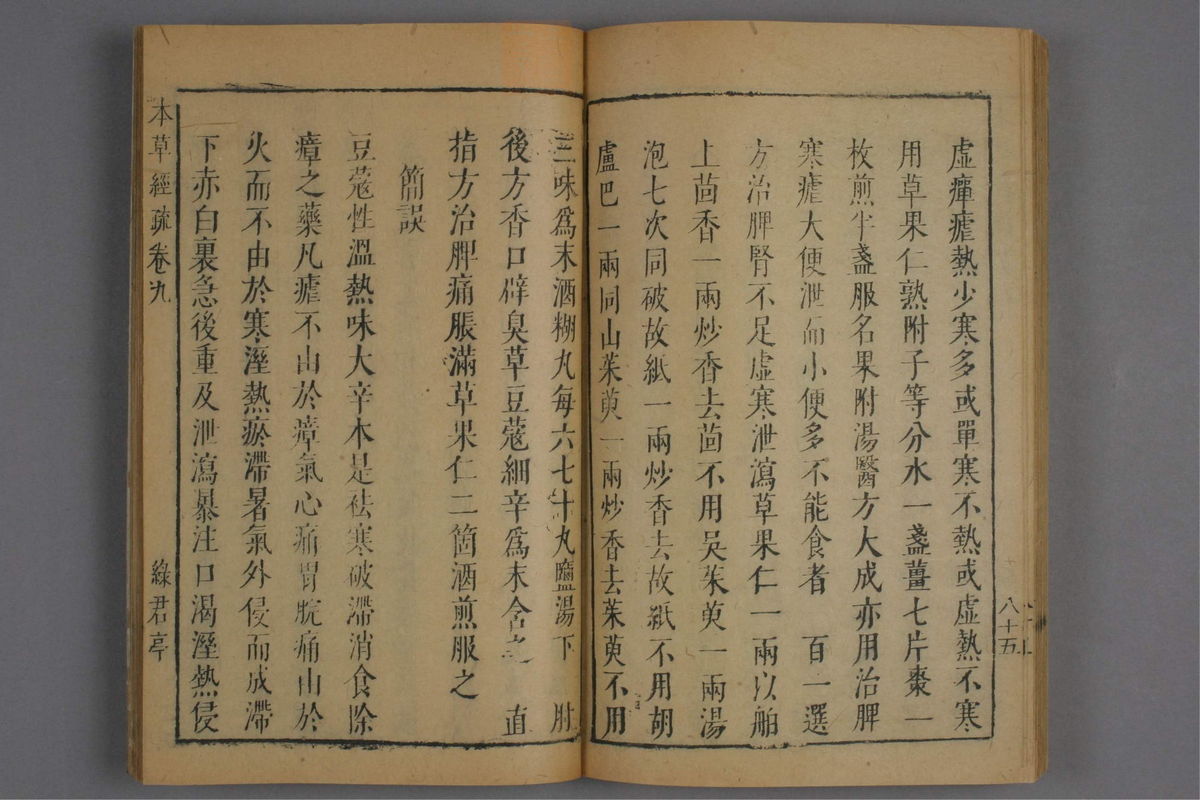 虛瘴瘧熱少寒多或單寒不熱或虛熱不寒
用草果仁熟附子等分水一盞薑七片棗一
枚煎半盞服名果附湯醫方大成亦用治脾
寒瘧大便泄而小便多不能食者 百一選
方治脾腎不足虛寒泄瀉草果仁一兩以舶
上茴香一兩炒香去茴不用吳茱萸一兩湯
泡七次同破故紙一兩炒香去故紙不用胡
盧巴一兩同山茱萸一兩炒香去茱萸不用
八十五
三味為末酒糊丸每六七十丸鹽湯下 肘
後方香口辟臭草豆蔻細辛為末含之 直
指方治脾痛脹滿草果仁二箇酒煎服之
簡誤
豆蔻性溫熱味大辛本是祛寒破滯消食除
瘴之藥凡瘧不由於瘴氣心痛胃脘痛由於
火而不由於寒溼熱瘀滯暑氣外侵而成滯
下赤白裏急後重及泄瀉暴注口渴溼熱侵
本草經疏卷九
綠君亭